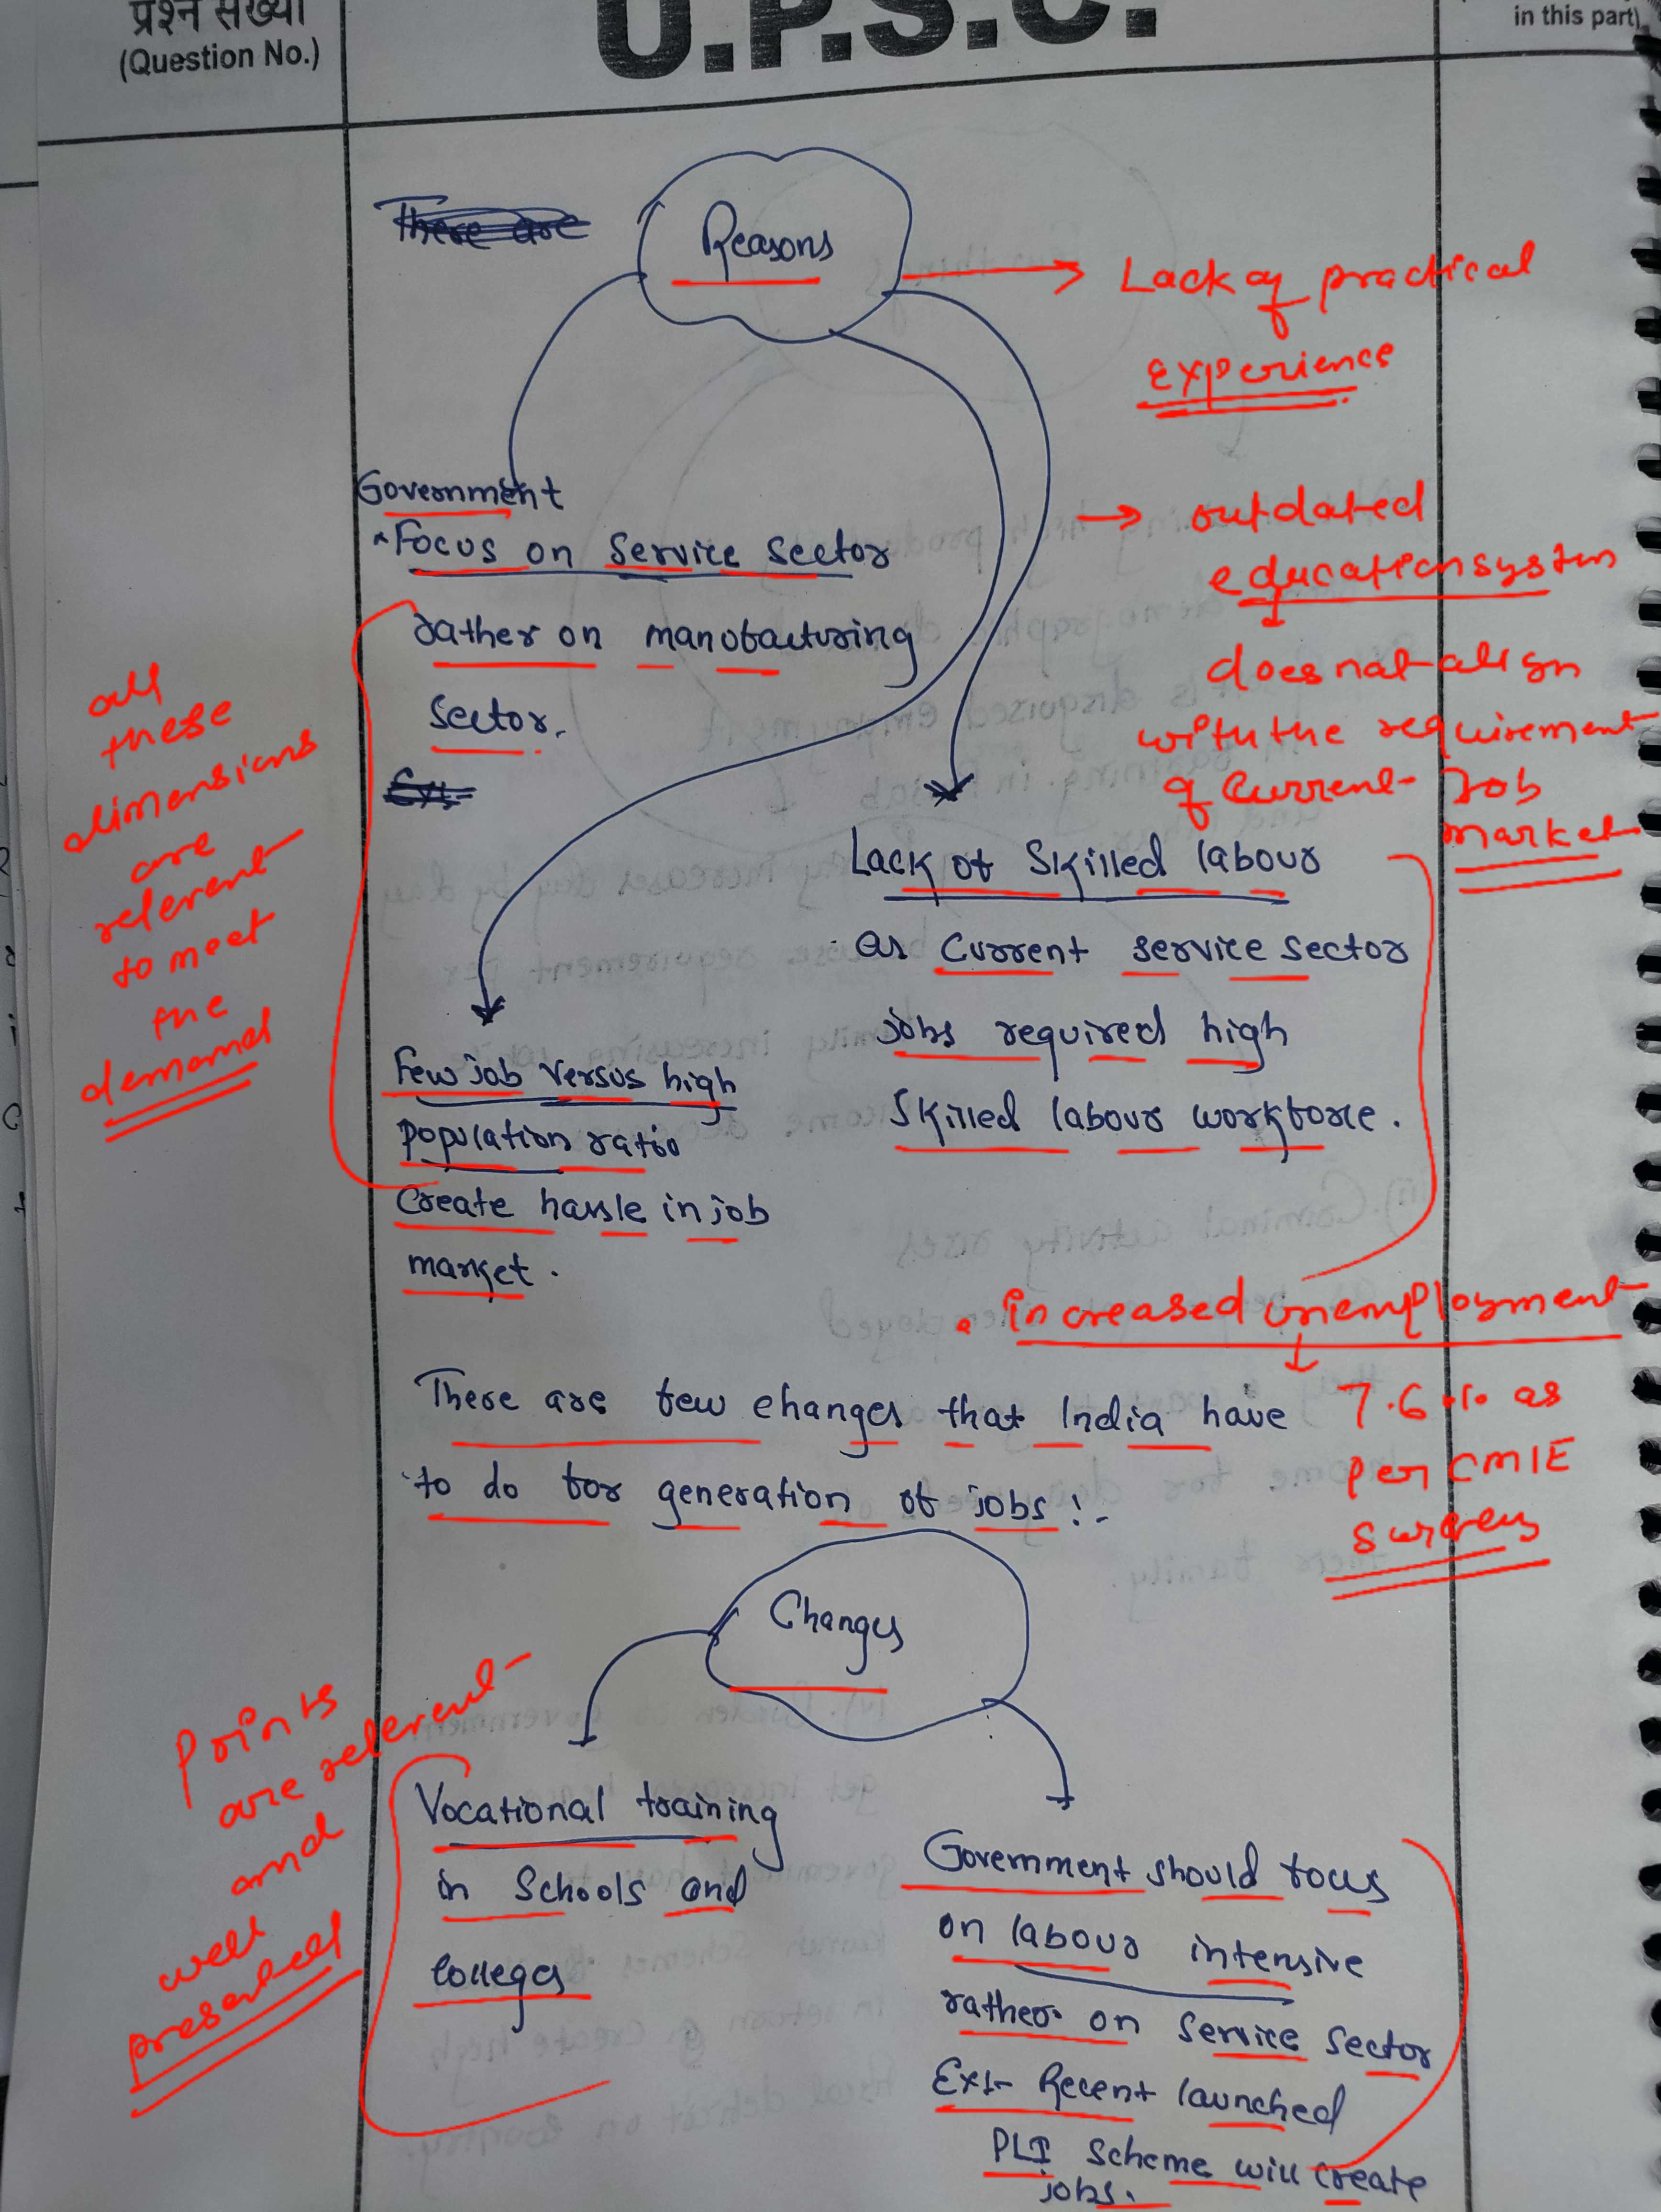 प्रश्न संख्या
(Question No.)
U.P.S.C.
in this part)
There are
Reasons
Lack of practical
experience
Government
Focus on Service Sector
rather on manufacturing
Sector.
Ex:-
outdated
education system
does not align
with the requirement
of current Job
market
all
these
dimensions
are
relevent
to meet
the
demand
Lack of Skilled labour
as current service sector
jobs required high
Skilled labour workforce.
Few job versus high
population ratio
Create hassle in job
market.
increased unemployment
7.6% as
per CMIE
survey
There are few changes that India have
to do for generation of jobs:-
Changes
Points
are relevent
and
well
presented
Vocational training
in Schools and
Colleges
Government should focus
on labour intensive
rather on Service Sector
Ex:- Recent launched
PLI Scheme will create
jobs.